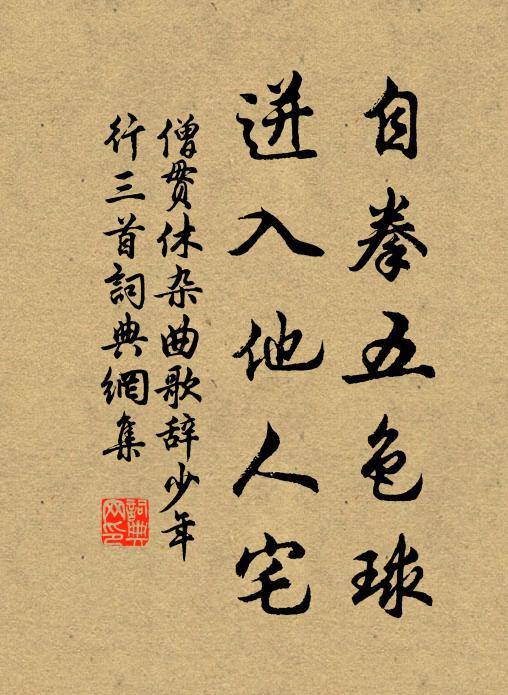 自拳五色球
迸入他人宅
僧贯休杂曲歌辞少年
行三首詞典網集
詞典
网印